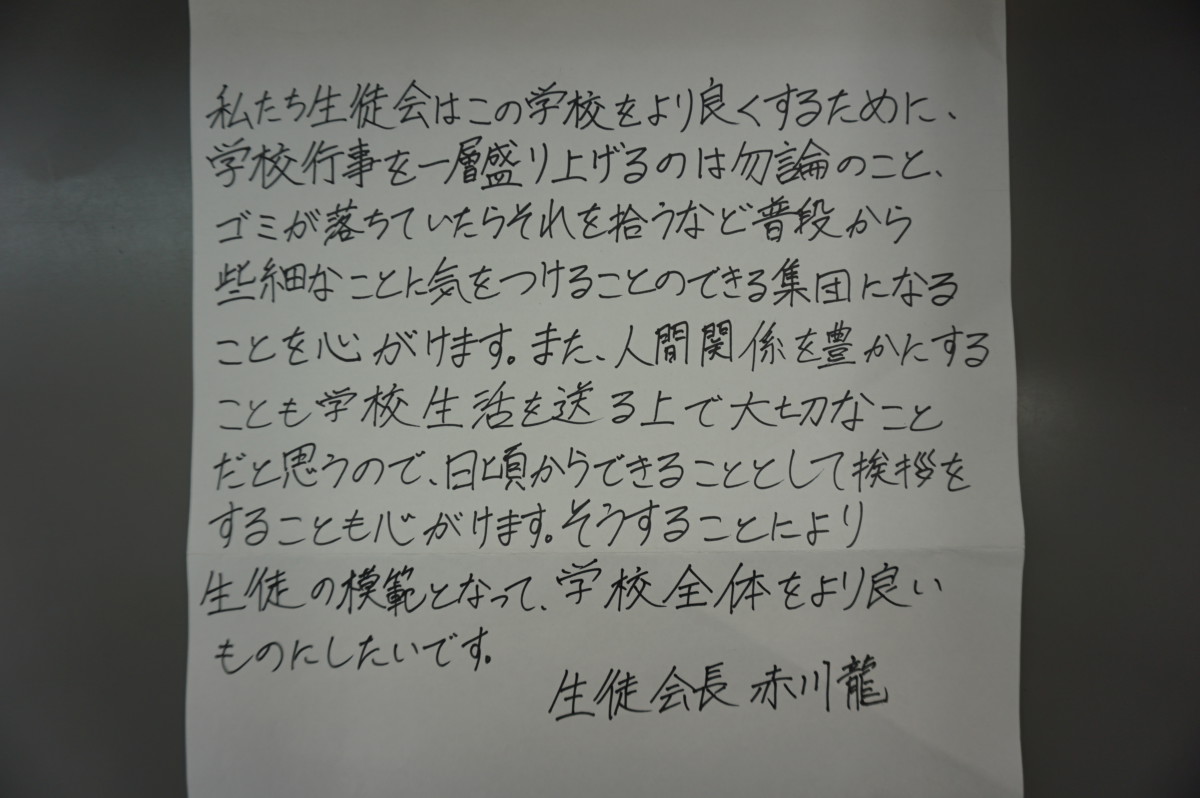 私たち生徒会はこの学校をより良くするために、
学校行事を一層盛り上げるのは勿論のこと、
ゴミが落ちていたらそれを拾うなど普段から
些細なことに気をつけることのできる集団になる
ことを心がけます。また、人間関係を豊かにする
ことも学校生活を送る上で大切なこと
だと思うので、日頃からできることとして挨拶を
することも心がけます。そうすることにより
生徒の模範となって、学校全体をより良い
ものにしたいです。
生徒会長 赤川龍